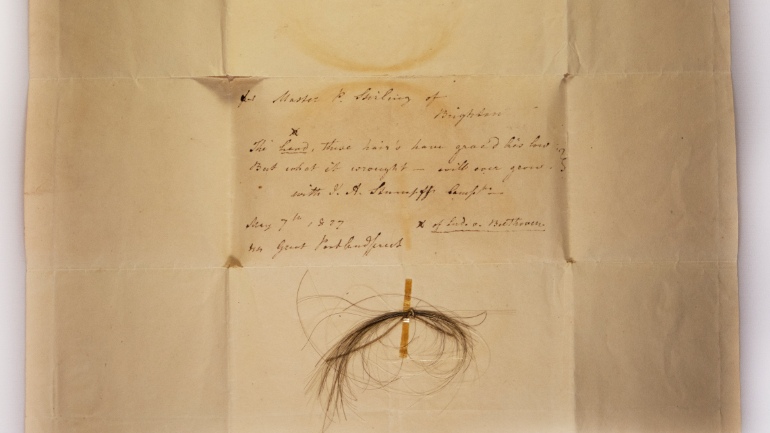 for Master P. Stirling of
Brighton
The head, these hair's have grac'd lies low
But what it wrought — will ever grow.
with J. A. Stumpff Compts
May 7th 1827
44 Great Portland Street
x of Lud. v. Beethoven.